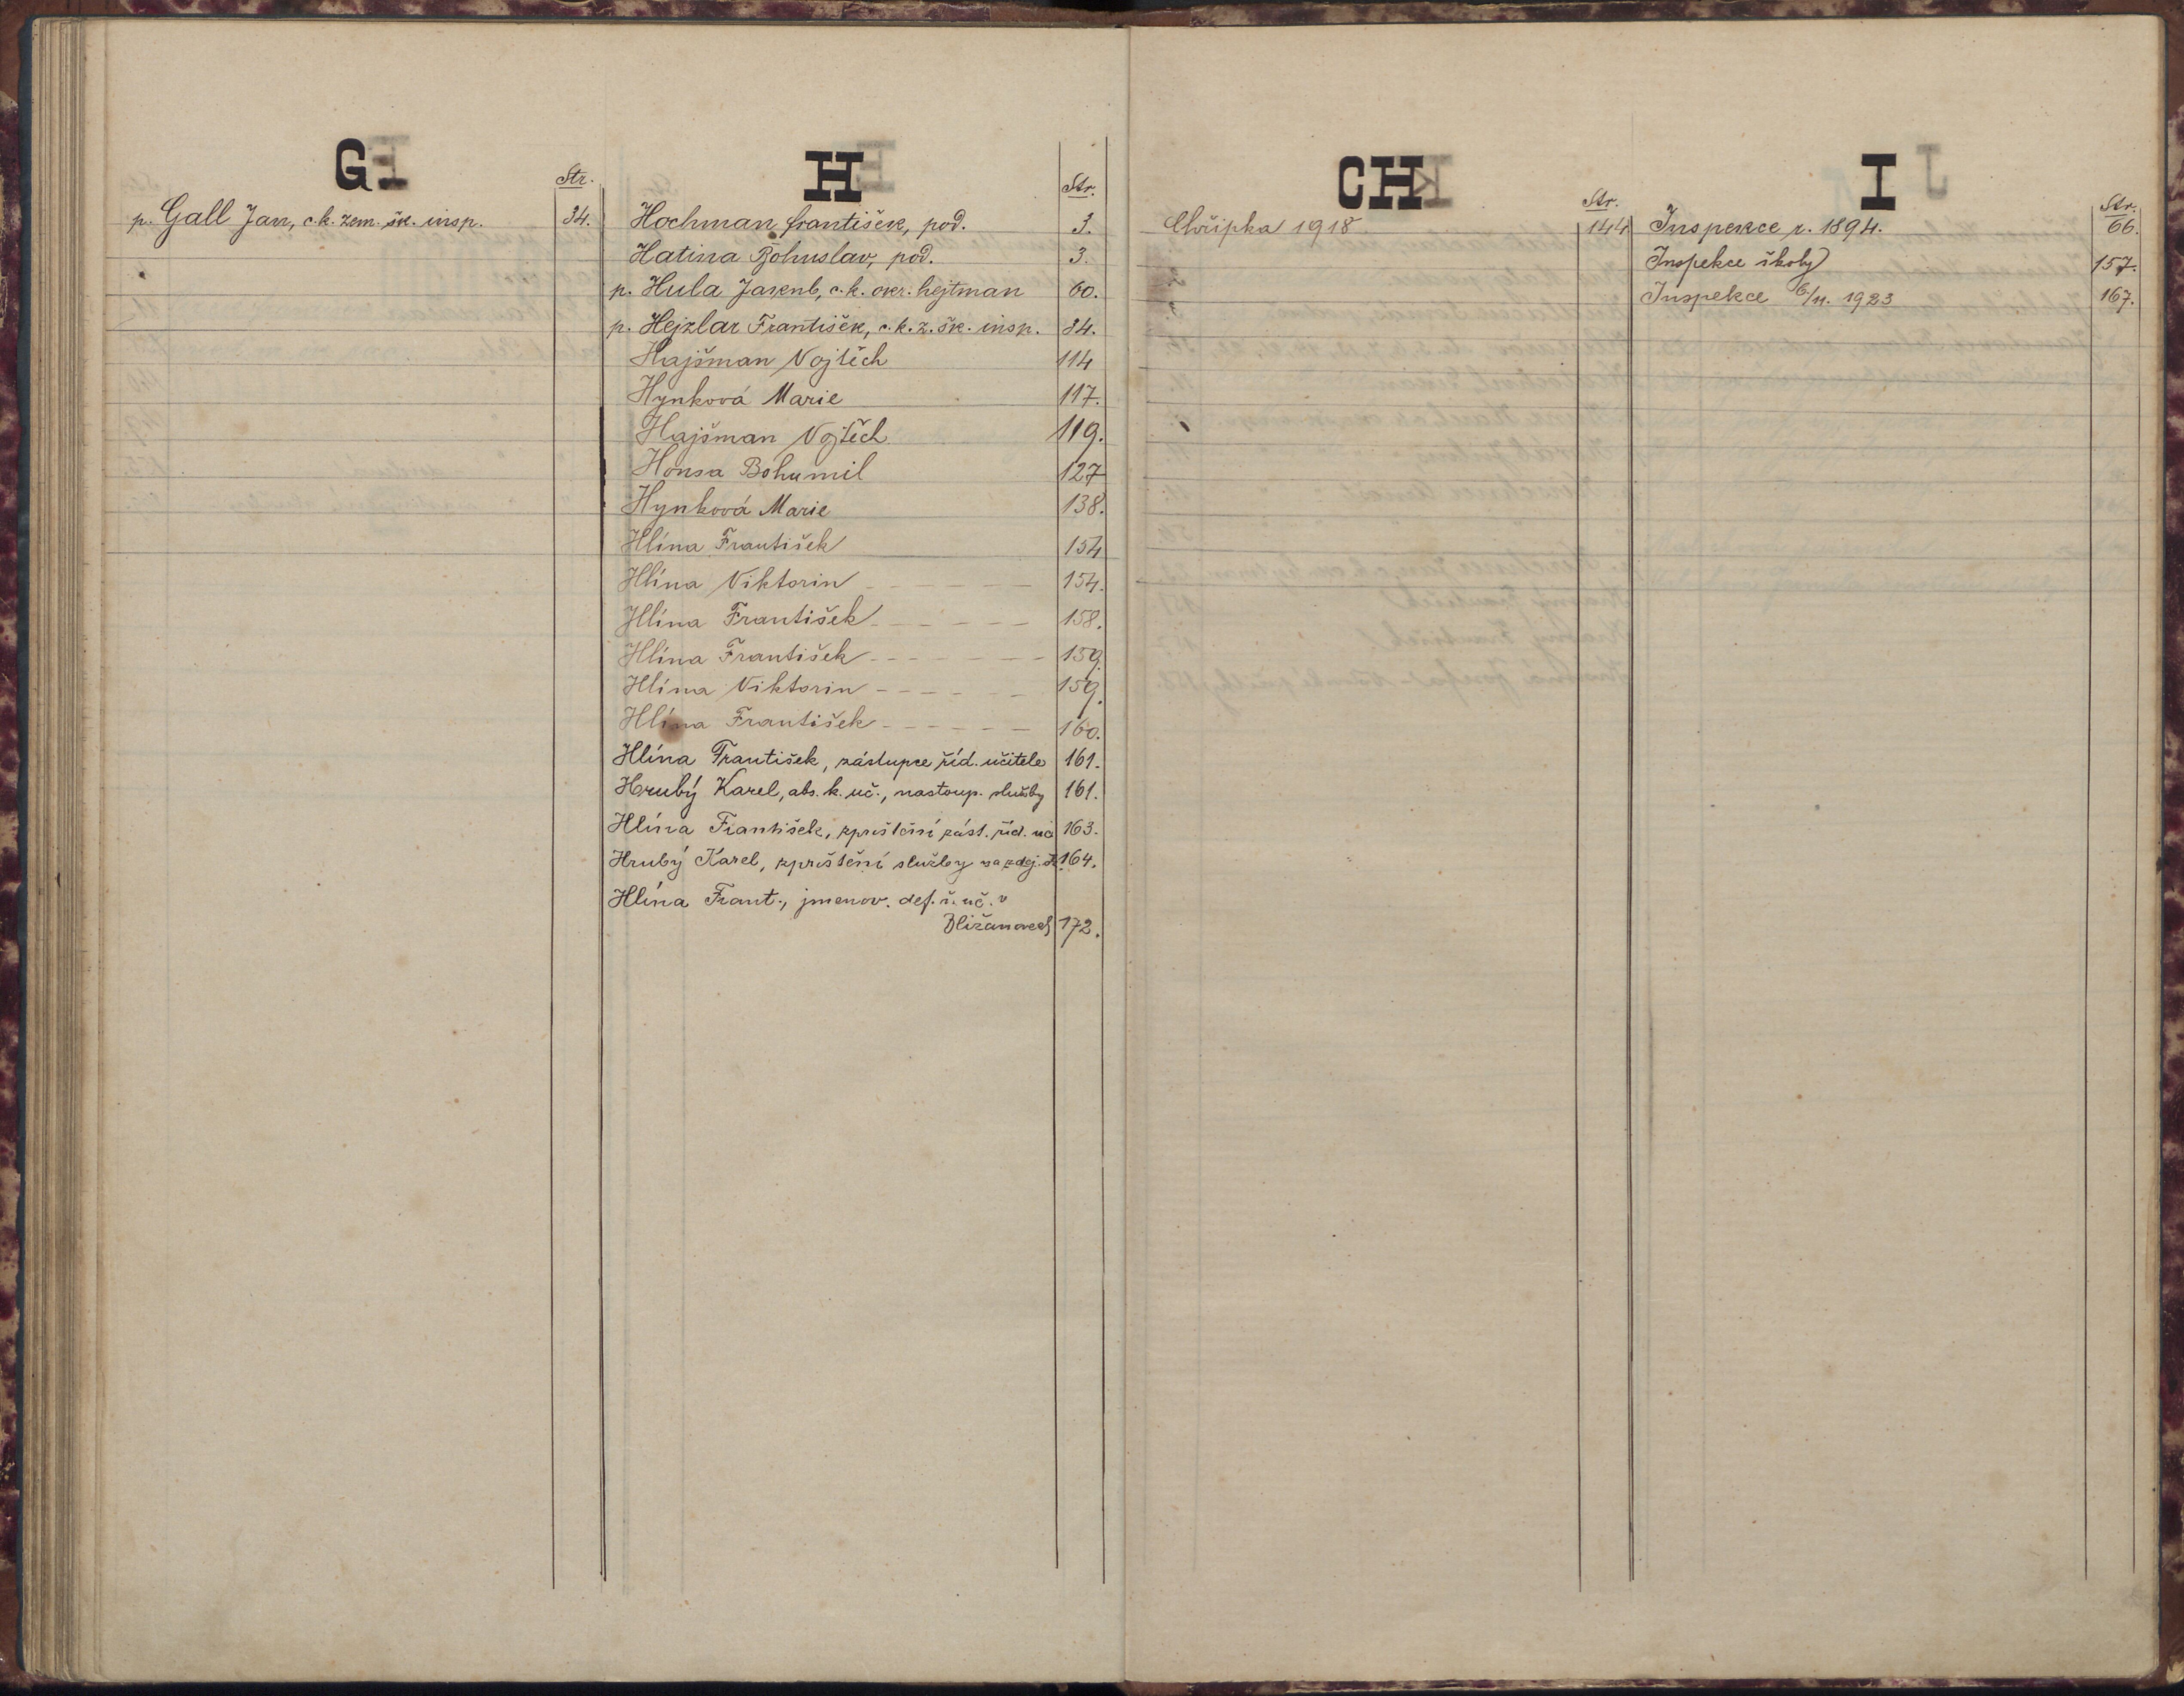 G
Str.
p. Gall Jan, c. k. zem. šk. insp. 34.
H
Str.
Hochman František, pod. 3.
Hatina Bohuslav, pod. 3.
p. Hula Jakub, c. k. okr. hejtman 60.
p. Hejzlar František, c. k. z. šk. insp. 84.
Hajšman Vojtěch 114
Hynková Marie 117.
Hajšman Vojtěch 119.
Honsa Bohumil 127
Hynková Marie 138.
Hlína František 154
Hlína Viktorin 154.
Hlína František 158.
Hlína František 159.
Hlína Viktorin 159.
Hlína František 160.
Hlína František, zástupce říd. učitele 161.
Hrubý Karel, abs. k. uč., nastoup. služby 161.
Hlína František, zproštění zást. říd. uč 163.
Hrubý Karel, zproštění služby na zdej. 164.
Hlína Frant., jmenov. def. ř. uč. v
Bližanovech 172.
CH
Str.
Chřipka 1918 144
I
Str.
Inspekce r. 1894. 66.
Inspekce školy 157.
Inspekce 6/11. 1923 167.